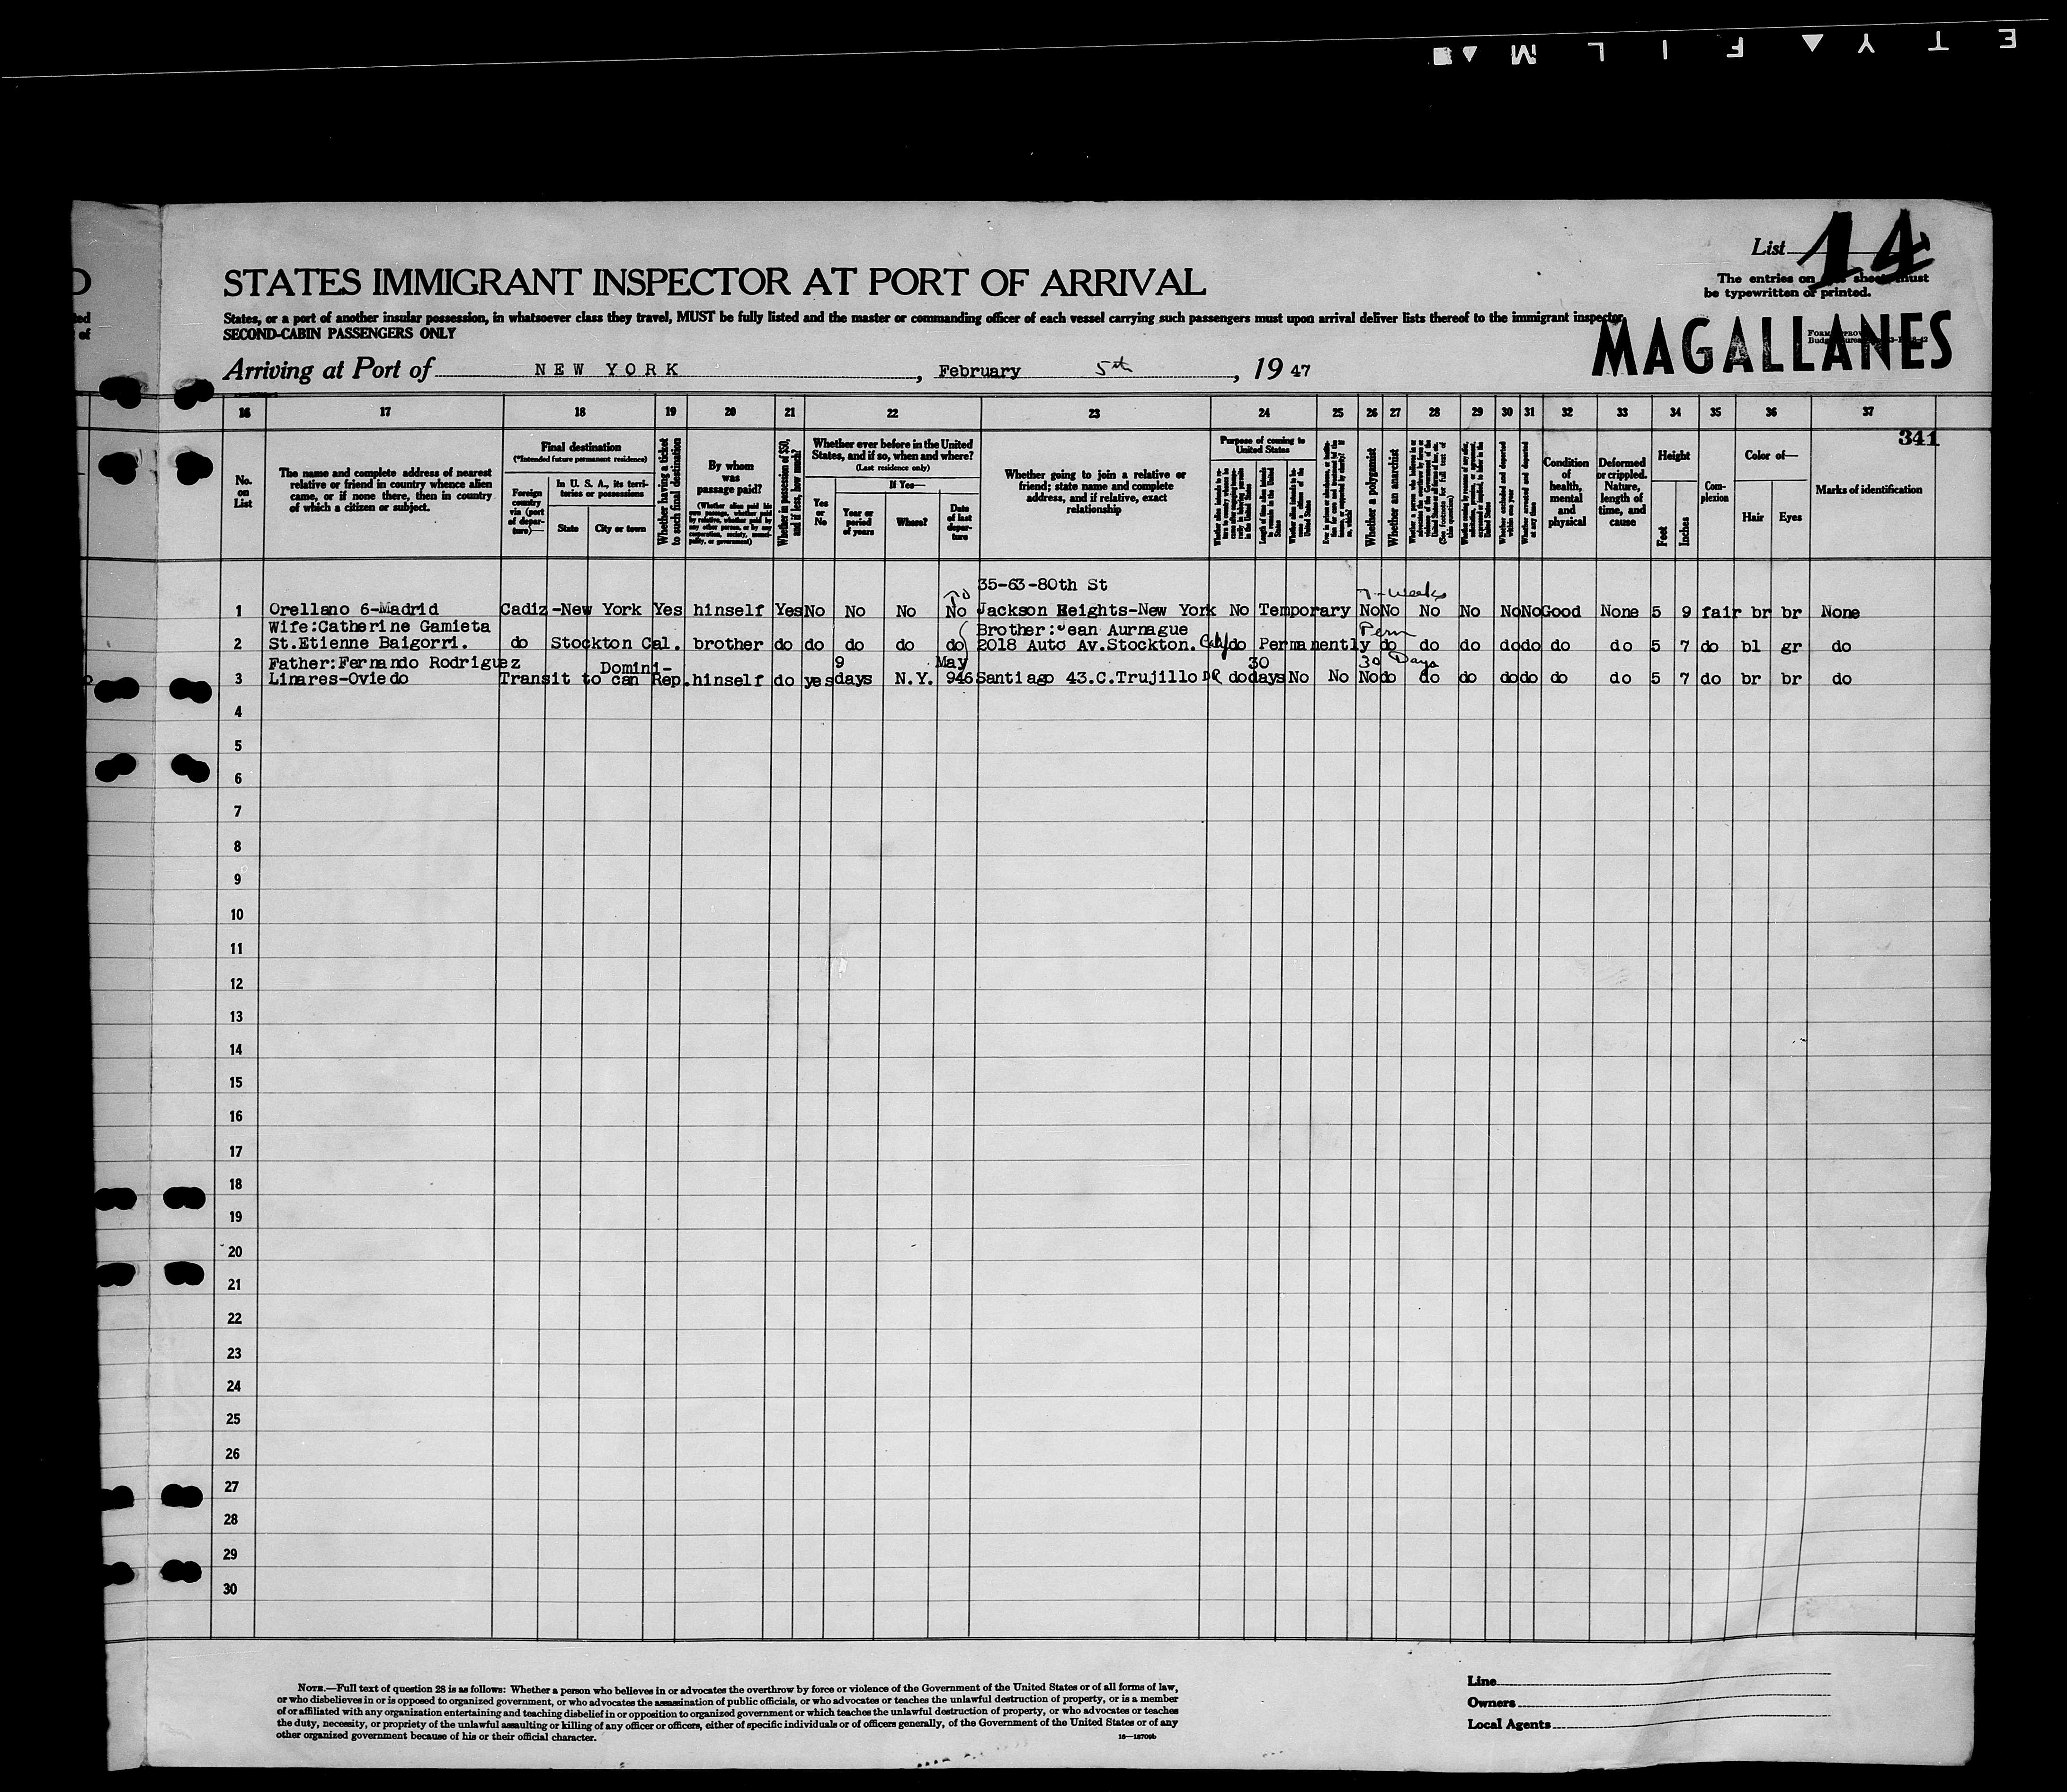 E T Y F I L M
List 14
The entries on sheet must
be typewritten or printed.
STATES IMMIGRANT INSPECTOR AT PORT OF ARRIVAL
States, or a port of another insular possession, in whatsoever class they travel, MUST be fully listed and the master or commanding officer of each vessel carrying such passengers must upon arrival deliver lists thereof to the immigrant inspector.
SECOND-CABIN PASSENGERS ONLY
MAGALLANES
Arriving at Port of NEW YORK, February 5th, 19 47
16 17 18 19 20 21 22 23 24 25 26 27 28 29 30 31 32 33 34 35 36 37
341
No. on List
The name and complete address of nearest
relative or friend in country whence alien
came, or if none there, then in country
of which a citizen or subject.
Final destination
(*Intended future permanent residence)
Foreign country via (port of departure)—
In U. S. A., its territories or possessions
State
City or town
Whether having a ticket to such final destination
By whom was passage paid?
(Whether alien paid his own passage, whether paid by relative, whether paid by any other person, or by any corporation, society, municipality, or government)
Whether in possession of $50, and if less, how much?
Whether ever before in the United States, and if so, when and where?
(Last residence only)
Yes or No
If Yes—
Year or period of years
Where?
Date of last departure
Whether going to join a relative or
friend; state name and complete
address, and if relative, exact
relationship
Purpose of coming to United States
Length of time alien intends to remain in the United States
Whether a polygamist
Whether an anarchist
Whether arrested and deported at any time
Condition of health, mental and physical
Deformed or crippled. Nature, length of time, and cause
Height
Feet
Inches
Complexion
Color of—
Hair
Eyes
Marks of identification
35-63-80th St
7-weeks
1 Orellano 6-Madrid Cadiz-New York Yes himself Yes No No No No Jackson Heights-New York No Temporary No No No No No No Good None 5 9 fair br br None
Wife:Catherine Gamieta Brother:Jean Aurnague Perm
2 St.Etienne Baigorri. do Stockton Cal. brother do do do do do 2018 Auto Av.Stockton. Cal do Permanently do do do do do do do 5 7 do bl gr do
Father:Fernando Rodriguez Domini- 9 May 30 30 Days
3 Linares-Oviedo Transit to can Rep. himself do yes days N.Y. 946 Santiago 43.C.Trujillo DR do days No No No do do do do do do do 5 7 do br br do
4
5
6
7
8
9
10
11
12
13
14
15
16
17
18
19
20
21
22
23
24
25
26
27
28
29
30
NOTE.—Full text of question 28 is as follows: Whether a person who believes in or advocates the overthrow by force or violence of the Government of the United States or of all forms of law,
or who disbelieves in or is opposed to organized government, or who advocates the assassination of public officials, or who advocates or teaches the unlawful destruction of property, or is a member
of or affiliated with any organization entertaining and teaching disbelief in or opposition to organized government or which teaches the unlawful destruction of property, or who advocates or teaches
the duty, necessity, or propriety of the unlawful assaulting or killing of any officer or officers, either of specific individuals or of officers generally, of the Government of the United States or of any
other organized government because of his or their official character.
Line
Owners
Local Agents